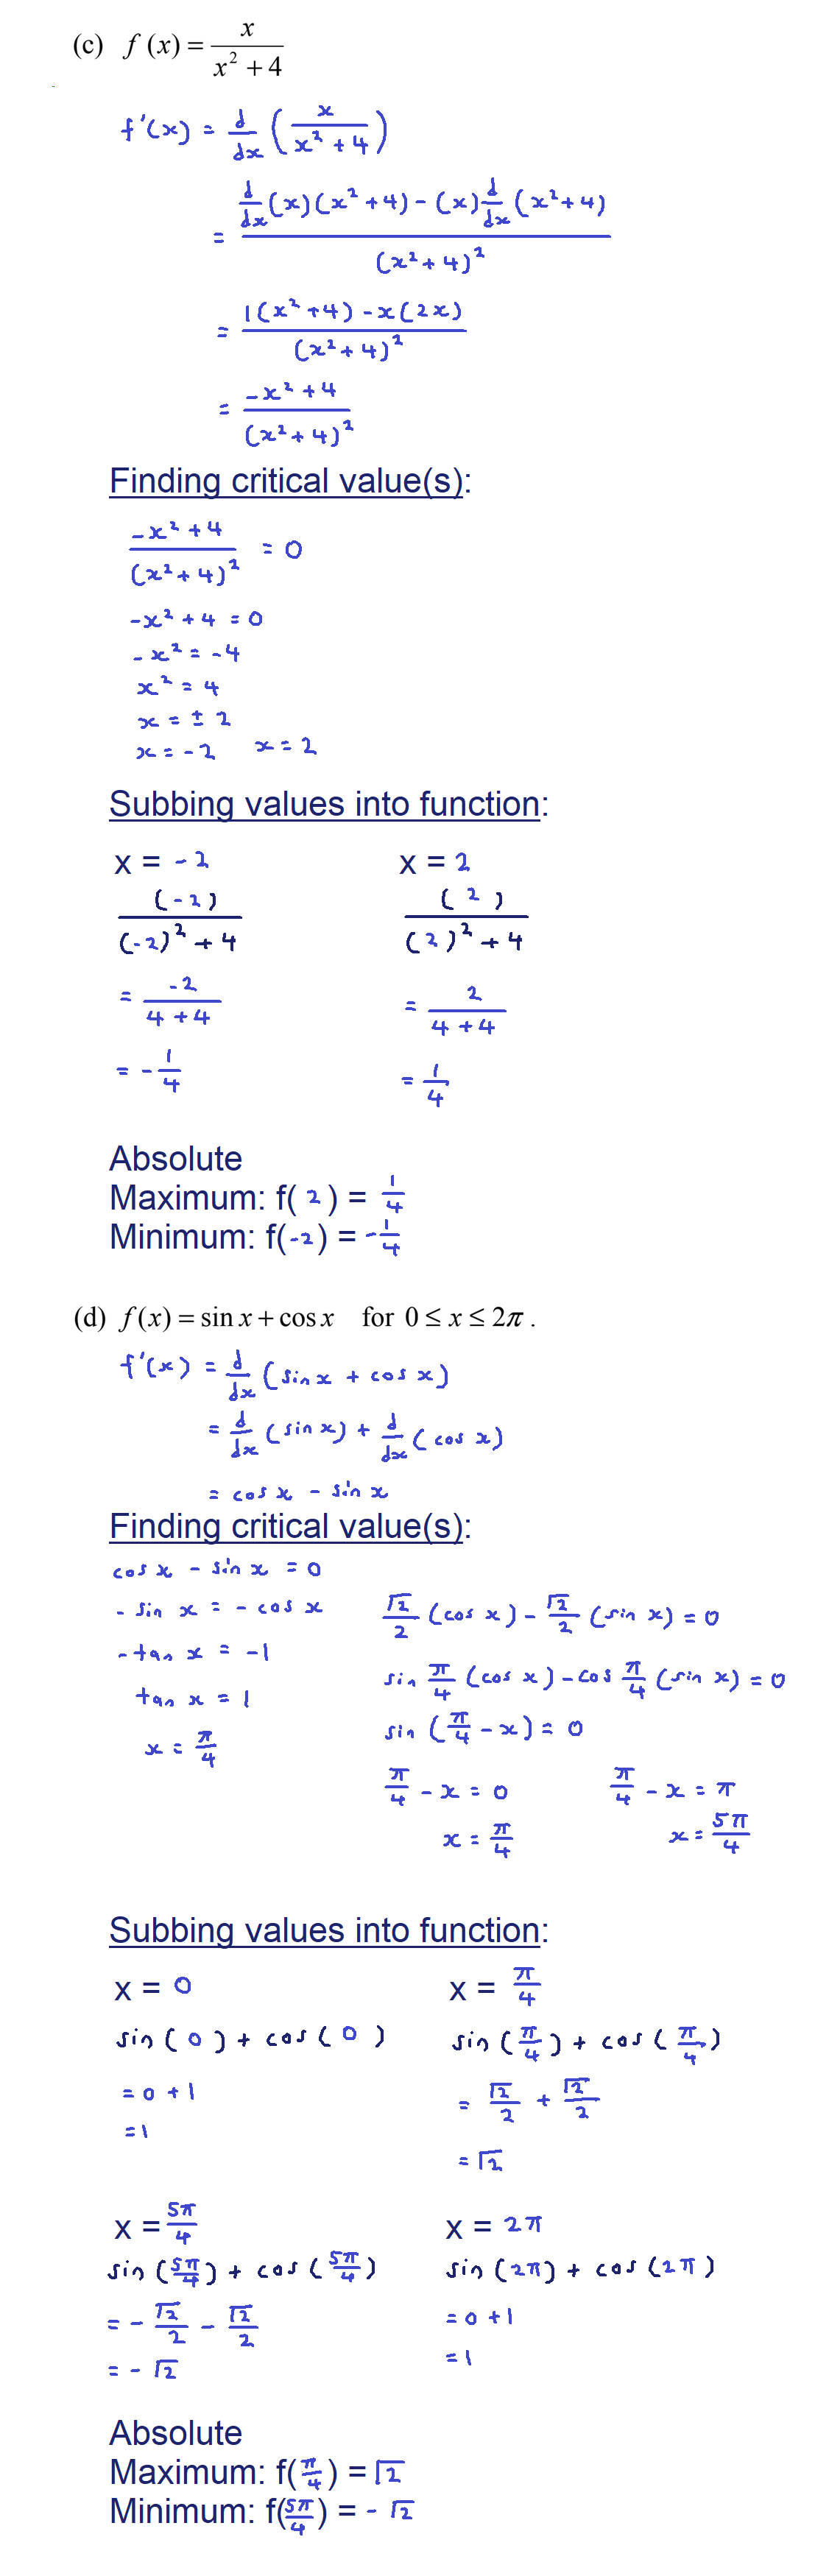 (c) f(x) = x/(x² + 4)
f'(x) = d/dx (x/(x² + 4))
= (d/dx(x)(x² + 4) - (x)d/dx(x² + 4))/(x² + 4)²
= (1(x² + 4) - x(2x))/(x² + 4)²
= (-x² + 4)/(x² + 4)²
Finding critical value(s):
(-x² + 4)/(x² + 4)² = 0
-x² + 4 = 0
-x² = -4
x² = 4
x = ± 2
x = -2 x = 2
Subbing values into function:
x = -2
(-2)/((-2)² + 4)
= -2/(4 + 4)
= -1/4
x = 2
(2)/((2)² + 4)
= 2/(4 + 4)
= 1/4
Absolute
Maximum: f(2) = 1/4
Minimum: f(-2) = -1/4
(d) f(x) = sin x + cos x for 0 ≤ x ≤ 2π.
f'(x) = d/dx (sin x + cos x)
= d/dx (sin x) + d/dx (cos x)
= cos x - sin x
Finding critical value(s):
cos x - sin x = 0
- sin x = - cos x
- tan x = -1
tan x = 1
x = π/4
√2/2 (cos x) - √2/2 (sin x) = 0
sin π/4 (cos x) - cos π/4 (sin x) = 0
sin (π/4 - x) = 0
π/4 - x = 0 π/4 - x = π
x = π/4 x = 5π/4
Subbing values into function:
x = 0
sin(0) + cos(0)
= 0 + 1
= 1
x = π/4
sin(π/4) + cos(π/4)
= √2/2 + √2/2
= √2
x = 5π/4
sin(5π/4) + cos(5π/4)
= - √2/2 - √2/2
= - √2
x = 2π
sin(2π) + cos(2π)
= 0 + 1
= 1
Absolute
Maximum: f(π/4) = √2
Minimum: f(5π/4) = - √2